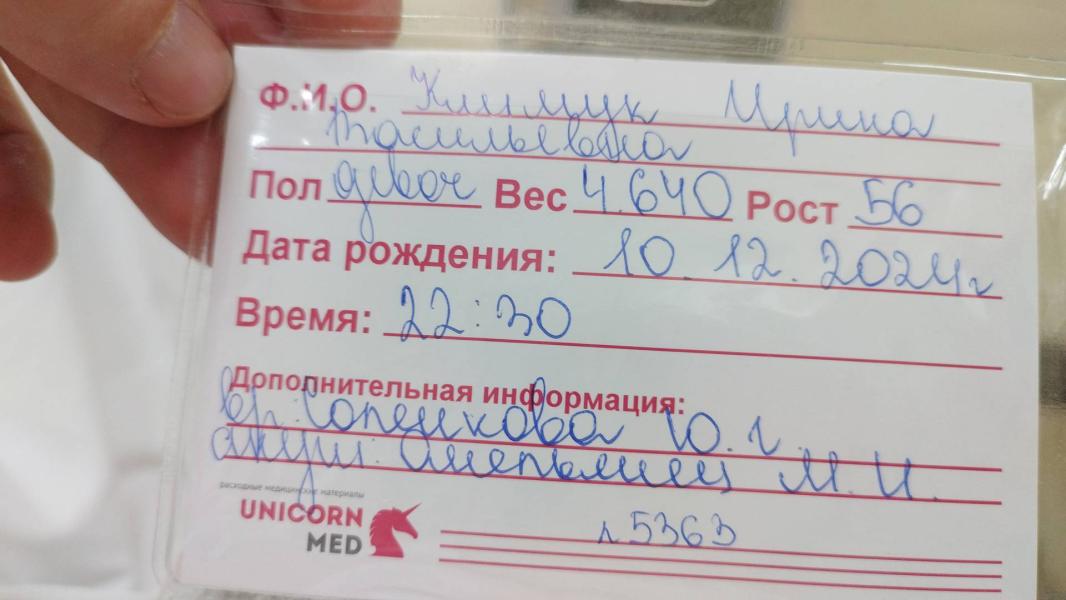 Ф.И.О. Климук Ирина
Васильевна
Пол девоч Вес 4.640 Рост 56
Дата рождения: 10.12.2024г
Время: 22:30
Дополнительная информация:
вр: Ю.
акуш: М.И.
расходные медицинские материалы
UNICORN
MED
5363